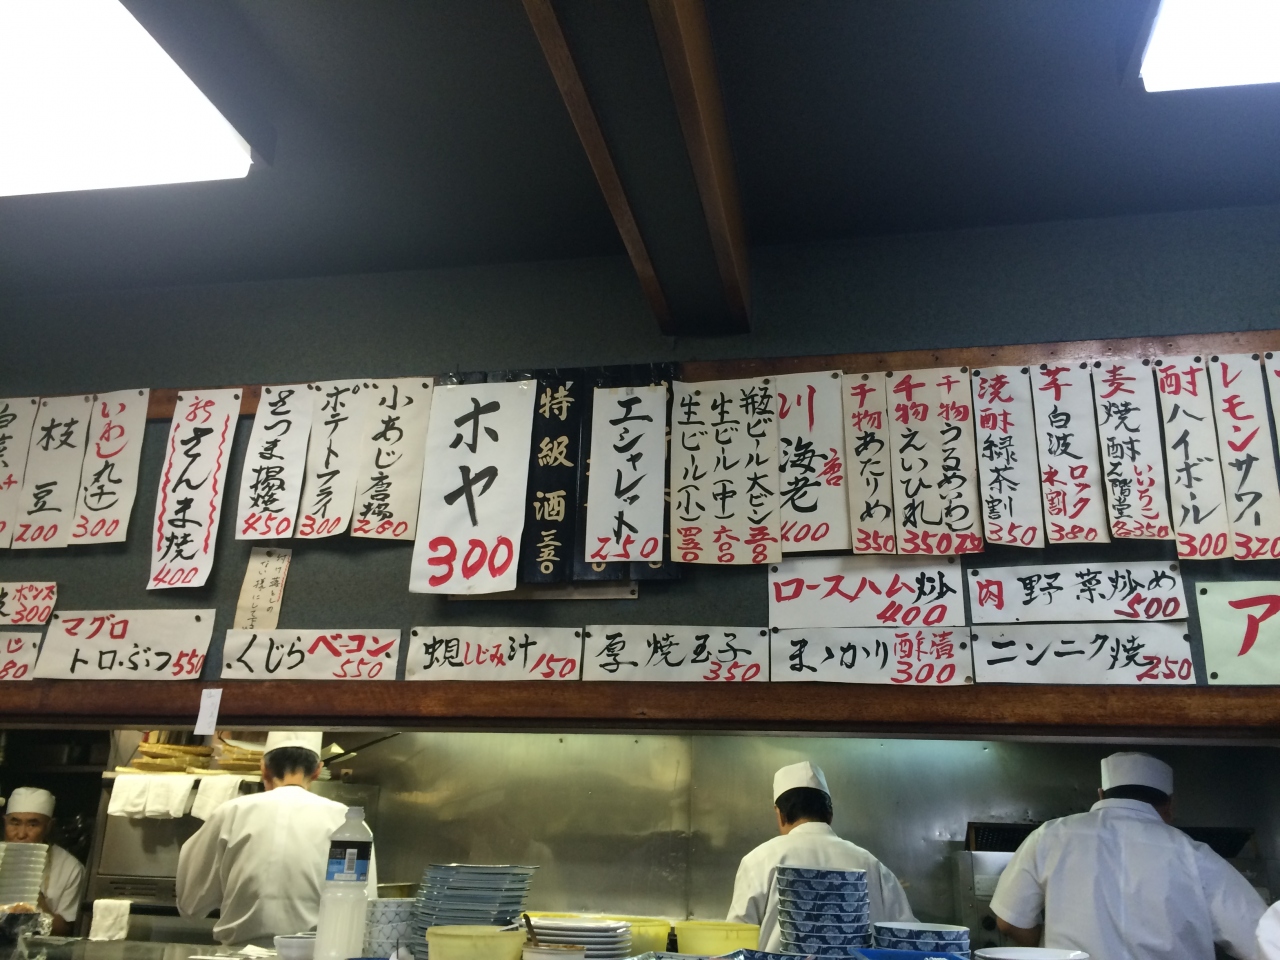 枝豆
200
いわし丸干
300
さんま焼
400
さつま揚焼
450
ポテトフライ
300
小あじ唐揚
280
ホヤ
300
特級酒
三五〇
エシャレット
250
瓶ビール大ビン
五五〇
生ビール(中)
六〇〇
生ビール(小)
川海老
400
干物あたりめ
350
干物えいひれ
350
干物うるめいわし
焼酎緑茶割
350
芋白波
ロック
水割
380
麦焼酎二階堂
いいちこ
各350
酎ハイボール
300
レモンサワー
320
ポンズ
300
ロースハム炒
400
肉野菜炒め
500
マグロ
トロ.ぶつ
550
くじらベーコン
550
蜆しじみ汁
150
厚焼玉子
350
まゝかり酢漬
300
ニンニク焼
250
ア